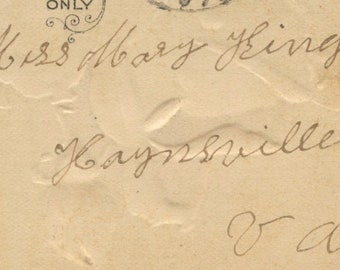 ONLY
Miss Mary King
Haynsville
Va